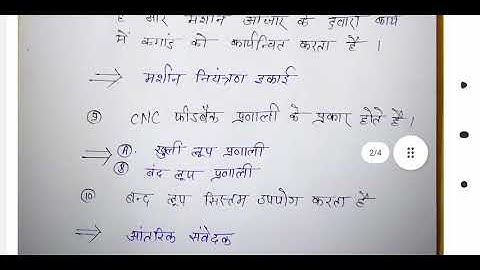 है और मशीन औजार के द्वारा कार्य
में कमांड को कार्यान्वित करता है ।
⇒ मशीन नियंत्रण इकाई
⑨ CNC फीडबैक प्रणाली के प्रकार होते है ।
⇒ Ⓐ खुली लूप प्रणाली
Ⓑ बंद लूप प्रणाली
2/4
⑩ बन्द लूप सिस्टम उपयोग करता है
⇒ आंतरिक संवेदक